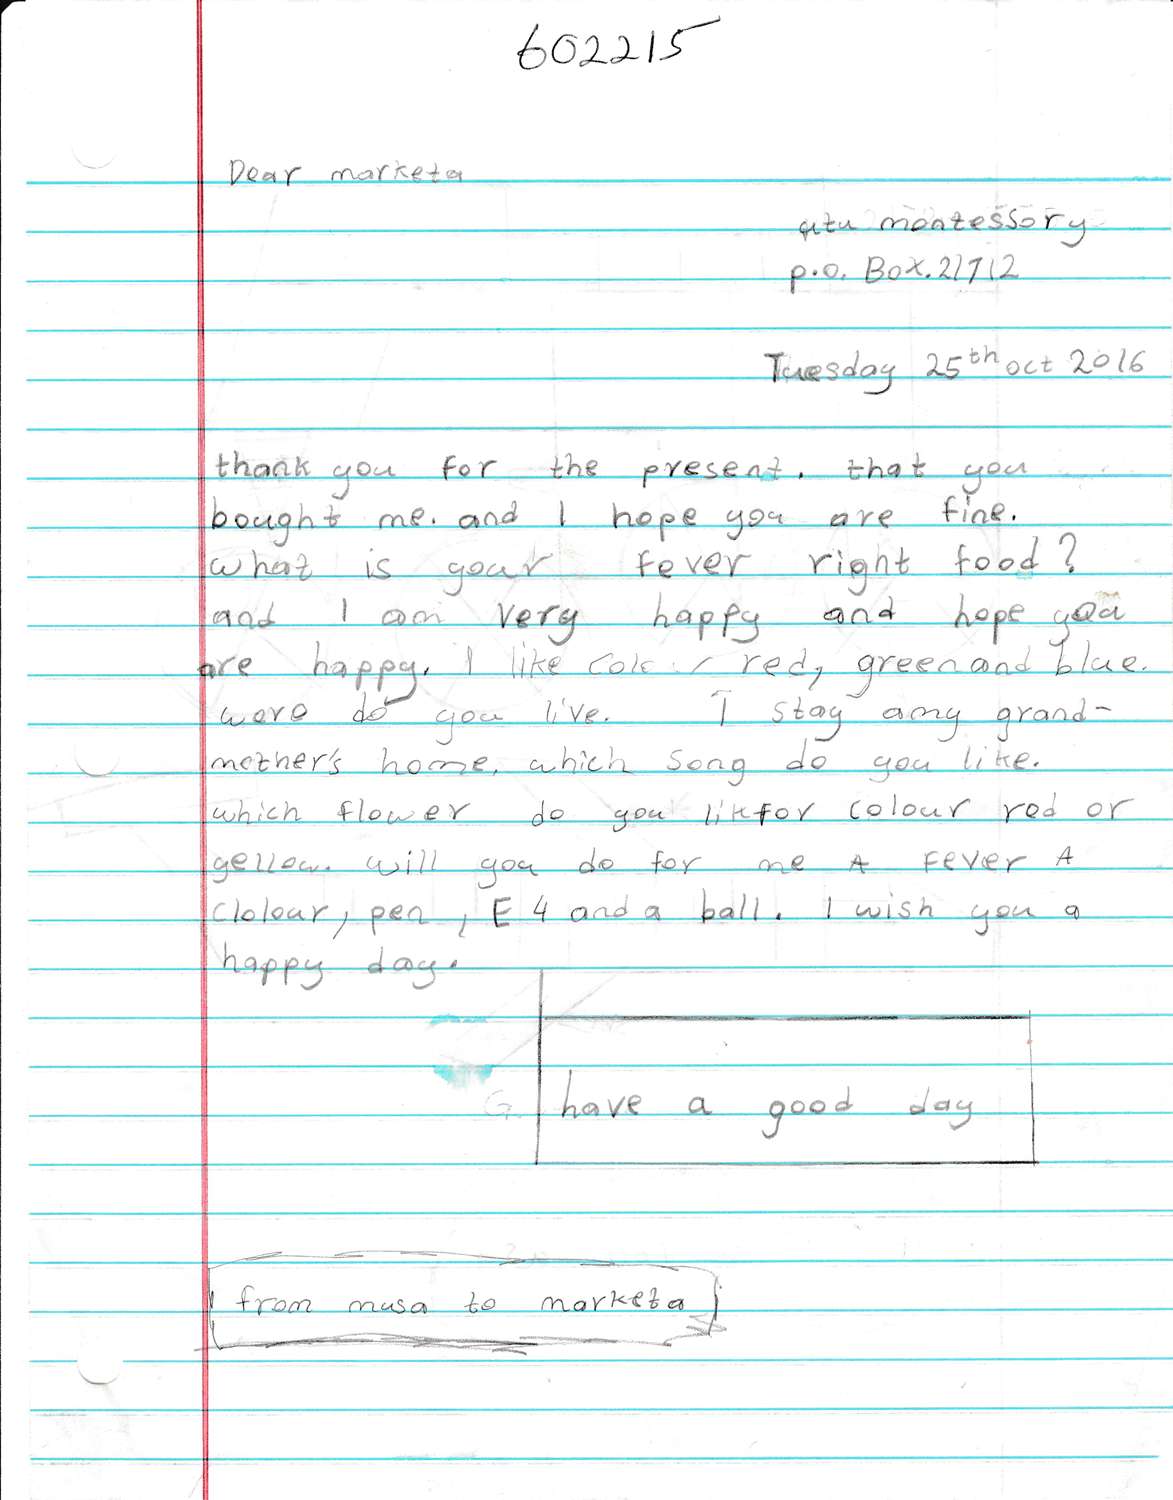 602215
Dear marketa
montessory
p.o. Box. 21712
Tuesday 25th oct 2016
thank you for the present. that you
bought me. and I hope you are fine.
what is your fever right food?
and I am very happy and hope you
are happy. I like red, green and blue.
were do you live. I stay amy grand-
mother's home. which song do you like.
which flower do you lik for colour red or
yellow. will you do for me A fever A
clolour, pen, E4 and a ball. I wish you a
happy day.
have a good day
from musa to marketa